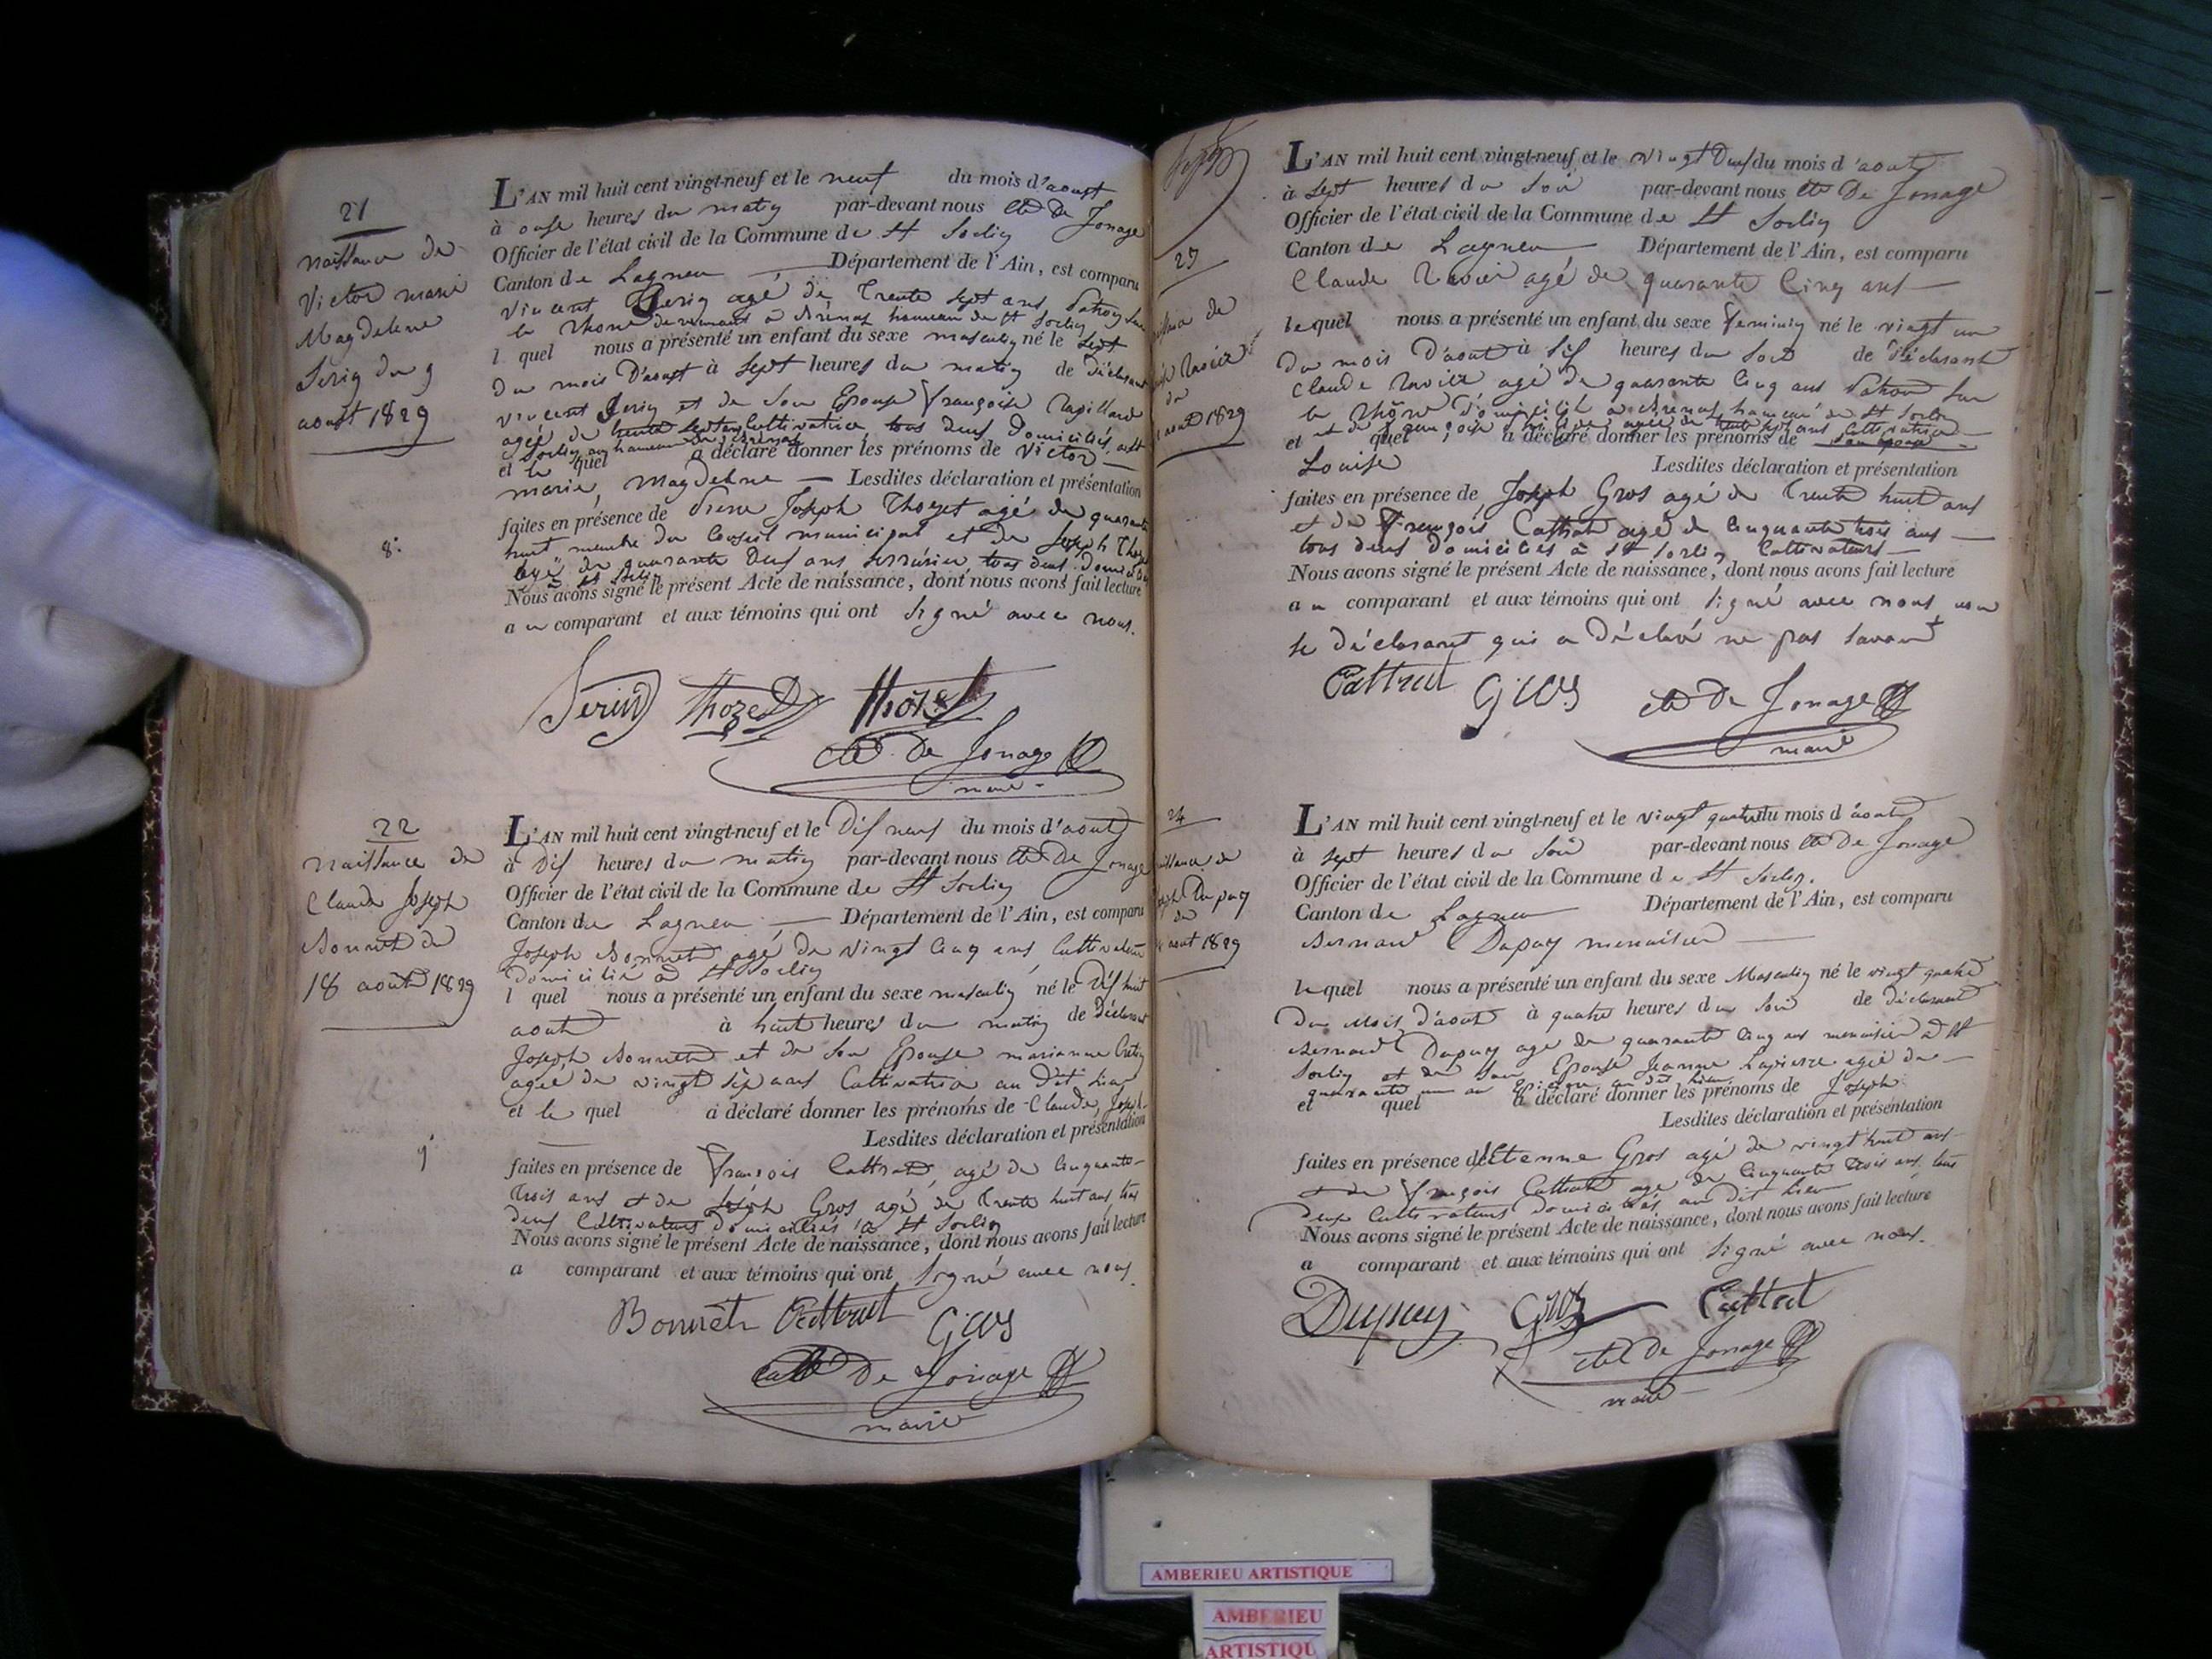 21
naissance de
Victor marie
Magdelene
Serin du 9
aoust 1829
L'AN mil huit cent vingt-neuf et le neuf du mois d'aoust
à onse heures du matin par-devant nous De Jonage
Officier de l'état civil de la Commune de St Sorlin
Canton de Lagneu Département de l'Ain, est comparu
vincent Serin agé de trente sept ans, Patron sur
le Rhone demeurant à Brenas hameau de St Sorlin
l quel nous a présenté un enfant du sexe masculin né le sept
du mois D'aoust à sept heures du matin de déclarant
vincent Serin et de son Epouse françoise Rapillard
agée de trente sept ans Cultivatrice tous deus domiciliés audt
St Sorlin au hameau de Brenas
et le quel a déclaré donner les prénoms de Victor
marie, Magdelene Lesdites déclaration et présentation
faites en présence de Pierre Joseph Thozet agé de quarante
huit membre du Conseil municipal et de Joseph Thozet
agé de quarante deus ans serrurier, tous deus Domiciliés
à St Sorlin
Nous avons signé le présent Acte de naissance, dont nous avons fait lecture
au comparant et aux témoins qui ont signé avec nous.
8.
Serin Thozet Thozet
De Jonage
maire
22
naissance de
Claude Joseph
Bonnet du
18 aout 1829
L'AN mil huit cent vingt-neuf et le Dis neuf du mois d'aout
à Dis heures du matin par-devant nous De Jonage
Officier de l'état civil de la Commune de St Sorlin
Canton de Lagneu Département de l'Ain, est comparu
Joseph Bonnet agé de vingt Cinq ans, Cultivateur
domicilié à St Sorlin
l quel nous a présenté un enfant du sexe masculin né le Dis huit
aout à huit heures du matin de déclarant
Joseph Bonnet et de son Epouse marianne Cretin
agée de vingt six ans Cultivatrice au Dit lieu
et le quel a déclaré donner les prénoms de Claude, Joseph
Lesdites déclaration et présentation
faites en présence de françois Cattrat, agé de Cinquante
Trois ans et de Joseph Gros agé de Trente huit ans, tous
deus Cultivateurs domiciliés à St Sorlin
Nous avons signé le présent Acte de naissance, dont nous avons fait lecture
a comparant et aux témoins qui ont signé avec nous.
9
Bonnet Cattrat Gros
De Jonage
maire
23
de
Ravier
du
aout 1829
L'AN mil huit cent vingt-neuf et le vingt Deus du mois d'aout
à sept heures du Soir par-devant nous De Jonage
Officier de l'état civil de la Commune de St Sorlin
Canton de Lagneu Département de l'Ain, est comparu
Claude Ravier agé de quarante Cinq ans
lequel nous a présenté un enfant du sexe feminin né le vingt un
du mois D'aout à six heures du Soir de déclarant
Claude Ravier agé de quarante Cinq ans Patron sur
le Rhône domicilié à Brenas hameau de St Sorlin
et quel a déclaré donner les prénoms de
Louise Lesdites déclaration et présentation
faites en présence de Joseph Gros agé de Trente huit ans
et de François Cattrat agé de Cinquante trois ans
tous deus domiciliés à St Sorlin Cultivateurs
Nous avons signé le présent Acte de naissance, dont nous avons fait lecture
au comparant et aux témoins qui ont signé avec nous, non
le déclarant qui a Déclaré ne pas savoir
Cattrat Gros De Jonage
maire
24
naissance de
Joseph Dupuy
du
aout 1829
L'AN mil huit cent vingt-neuf et le vingt quatre du mois d'aout
à sept heures du Soir par-devant nous De Jonage
Officier de l'état civil de la Commune de St Sorlin.
Canton de Lagneu Département de l'Ain, est comparu
Bernard Dupuy menuisier
lequel nous a présenté un enfant du sexe Masculin né le vingt quatre
du Mois d'aout à quatre heures du Soir de déclarant
Bernard Dupuy agé de quarante Cinq ans menuisier à St
Sorlin et de son Epouse Jeanne Lapierre agée de
quarante un an
et quel a déclaré donner les prénoms de Joseph
Lesdites déclaration et présentation
faites en présence d'Etienne Gros agé de vingt huit ans
et de françois Cattrat agé de Cinquante trois ans tous
deux Cultivateurs domiciliés au dit lieu
Nous avons signé le présent Acte de naissance, dont nous avons fait lecture
a comparant et aux témoins qui ont signé avec nous.
Dupuy Gros Cattrat
De Jonage
maire
AMBERIEU ARTISTIQUE
AMBERIEU
ARTISTIQU